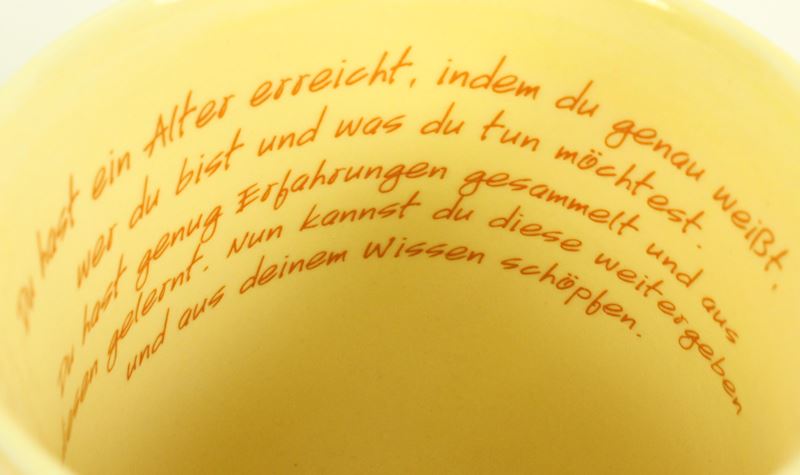 Du hast ein Alter erreicht, indem du genau weißt,
wer du bist und was du tun möchtest.
Du hast genug Erfahrungen gesammelt und aus
gelernt. Nun kannst du diese weitergeben
und aus deinem Wissen schöpfen.